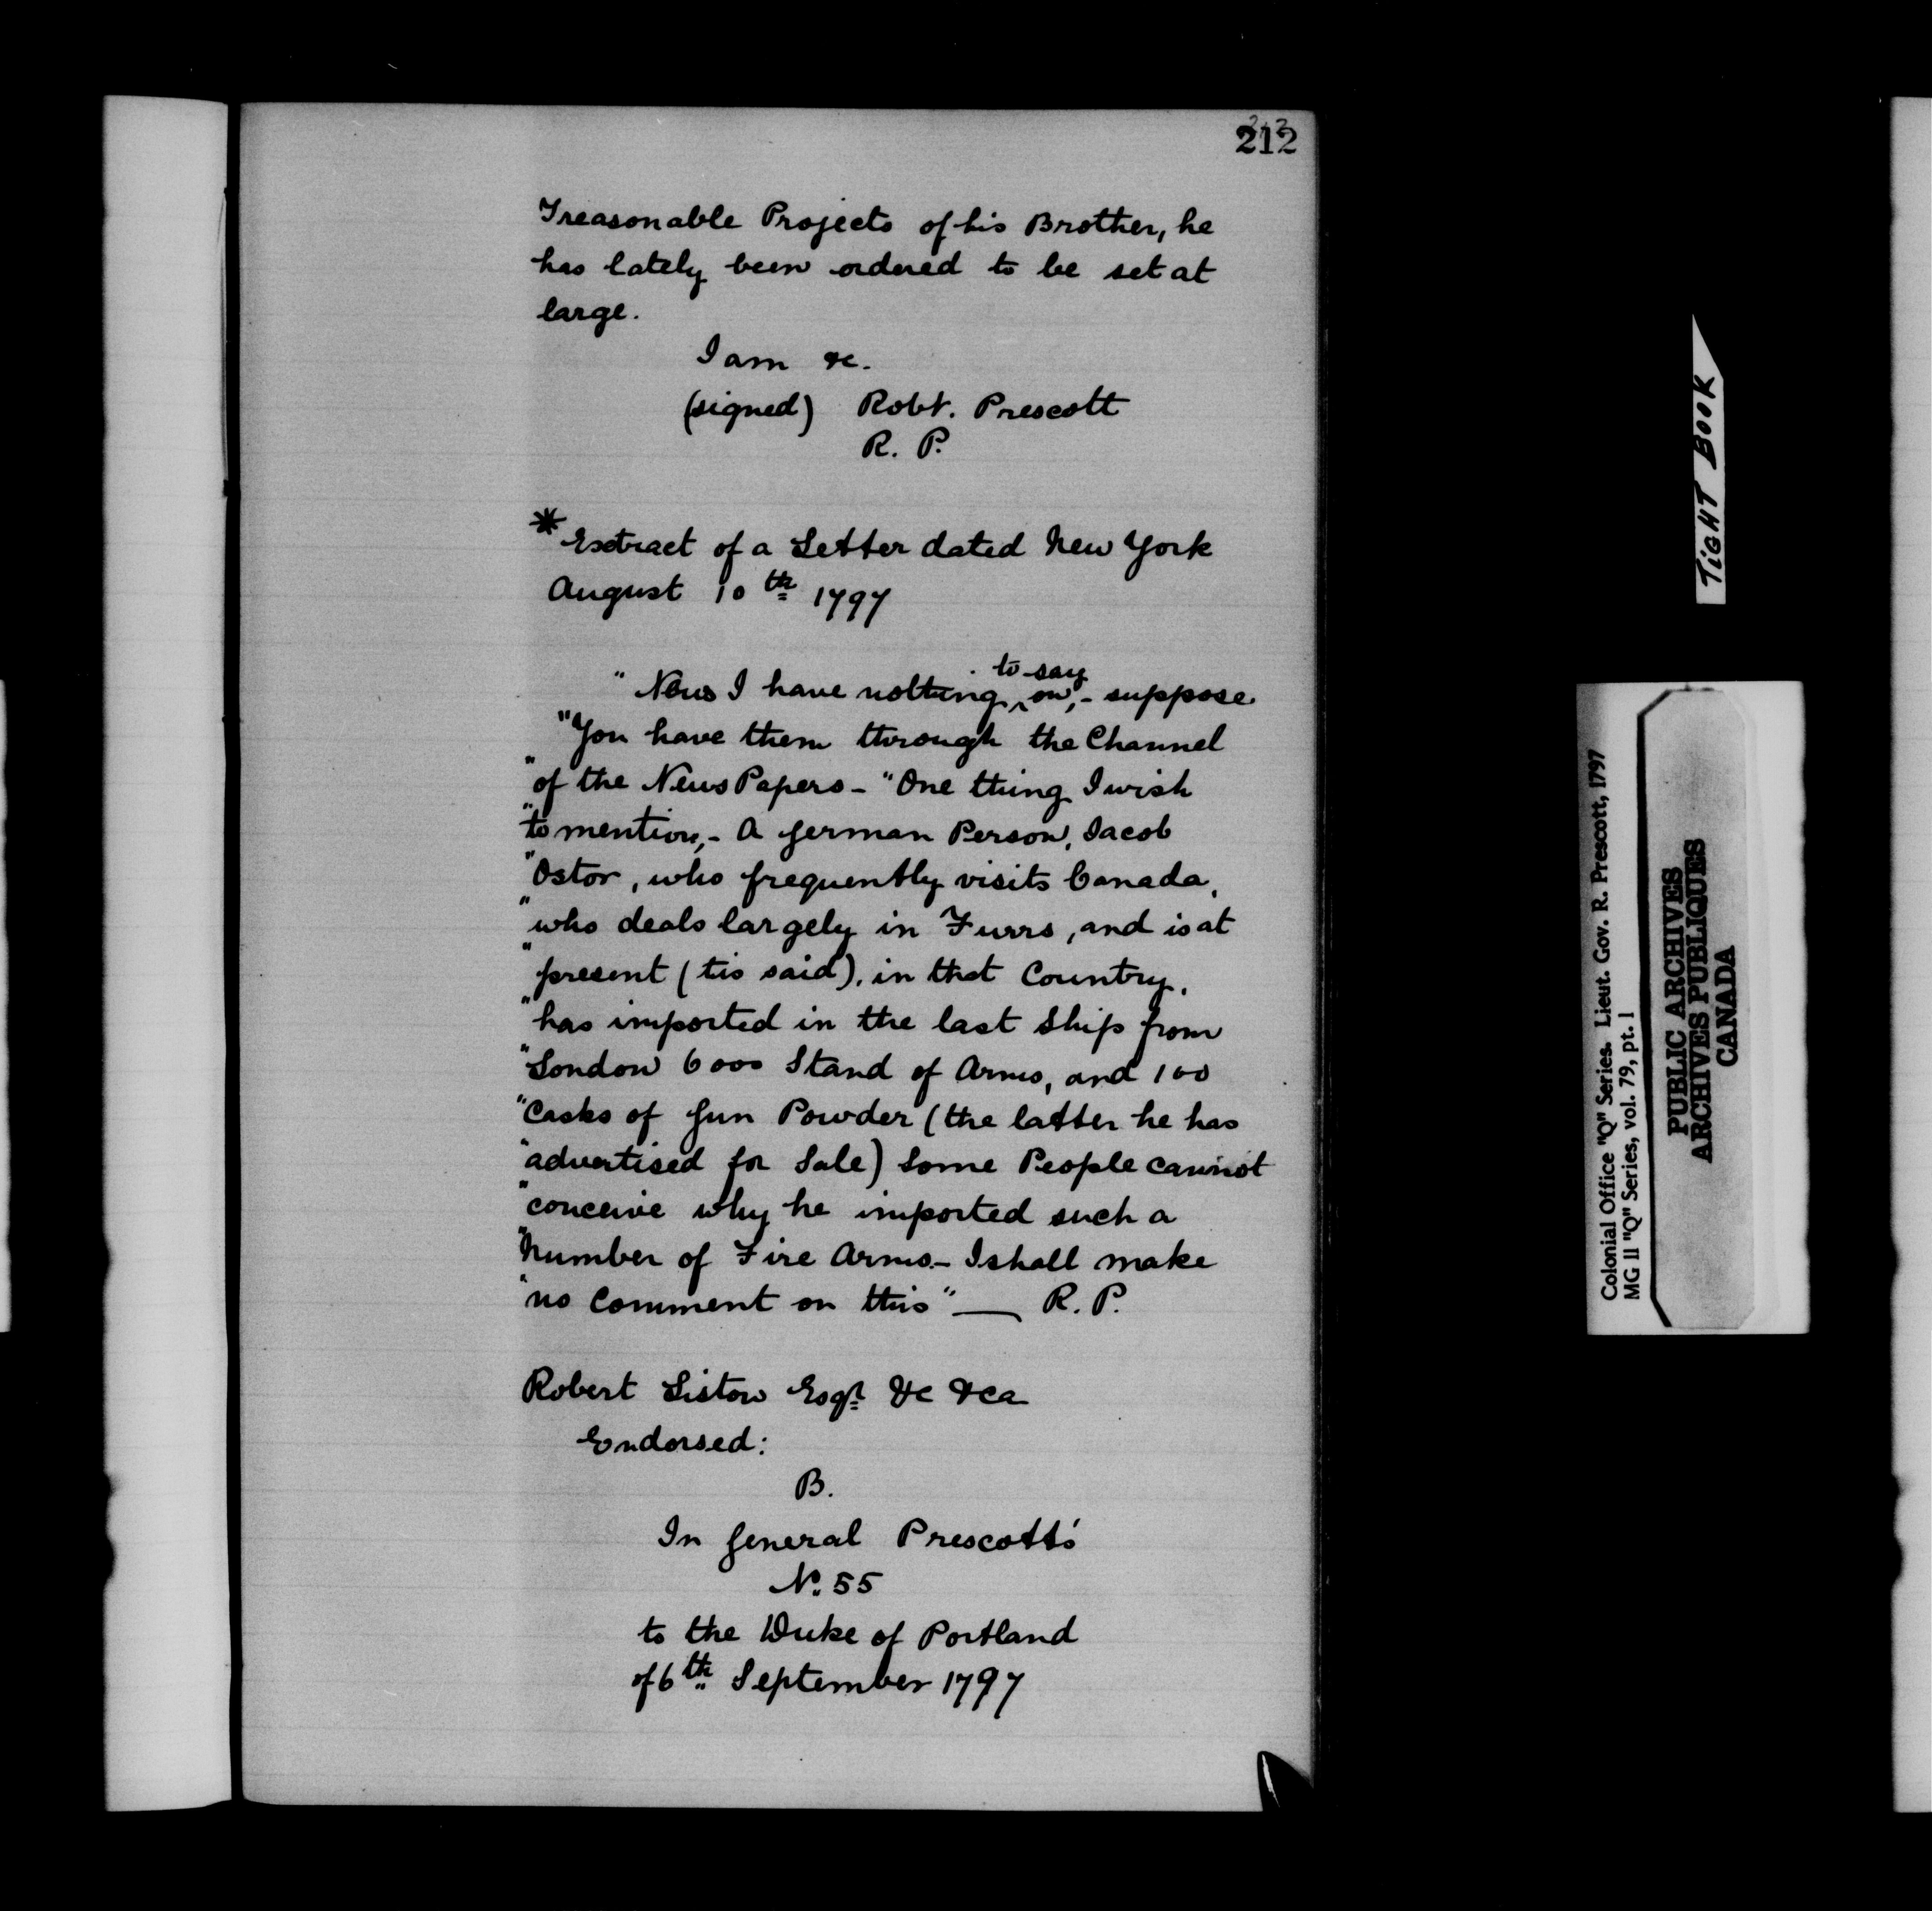 212
Treasonable Projects of his Brother, he
has lately been ordered to be set at
large.
I am &c.
(signed) Robt. Prescott
R. P.
*Extract of a Letter dated New York
August 10th 1797
"News I have nothing to say on,- suppose
"You have them through the Channel
"of the News Papers - "One thing I wish
"to mention,- A German Person, Jacob
"Ostor, who frequently visits Canada,
"who deals largely in Furrs, and is at
"present (tis said), in that Country,
"has imported in the last Ship from
"London 6000 Stand of Arms, and 100
"Casks of Gun Powder (the latter he has
"advertised for Sale) Some People cannot
"conceive why he imported such a
"Number of Fire Arms.- I shall make
"no Comment on this" — R. P.
Robert Liston Esqr. &c &ca
Endorsed:
B.
In General Prescott's
No. 55
to the Duke of Portland
of 6th September 1797
TIGHT BOOK
Colonial Office "Q" Series. Lieut. Gov. R. Prescott, 1797
MG 11 "Q" Series, vol. 79, pt. 1
PUBLIC ARCHIVES
ARCHIVES PUBLIQUES
CANADA